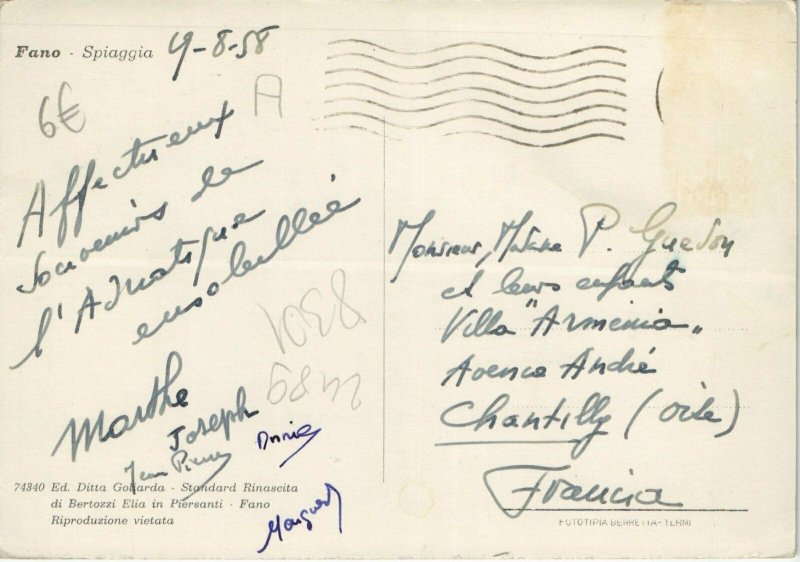 Fano - Spiaggia 9-8-58
6€
A
Affectueux
souvenirs de
l'Adriatique
ensoleillée
Marthe
Joseph
Jean Pierre
Annie
74340 Ed. Ditta Goliarda - Standard Rinascita
di Bertozzi Elia in Piersanti - Fano
Riproduzione vietata
Monsieur, Madame P. Guedon
et leurs enfants
Villa "Armenia"
Avenue André
Chantilly (Oise)
Francia
FOTOTIPIA BERRETTA - TERNI